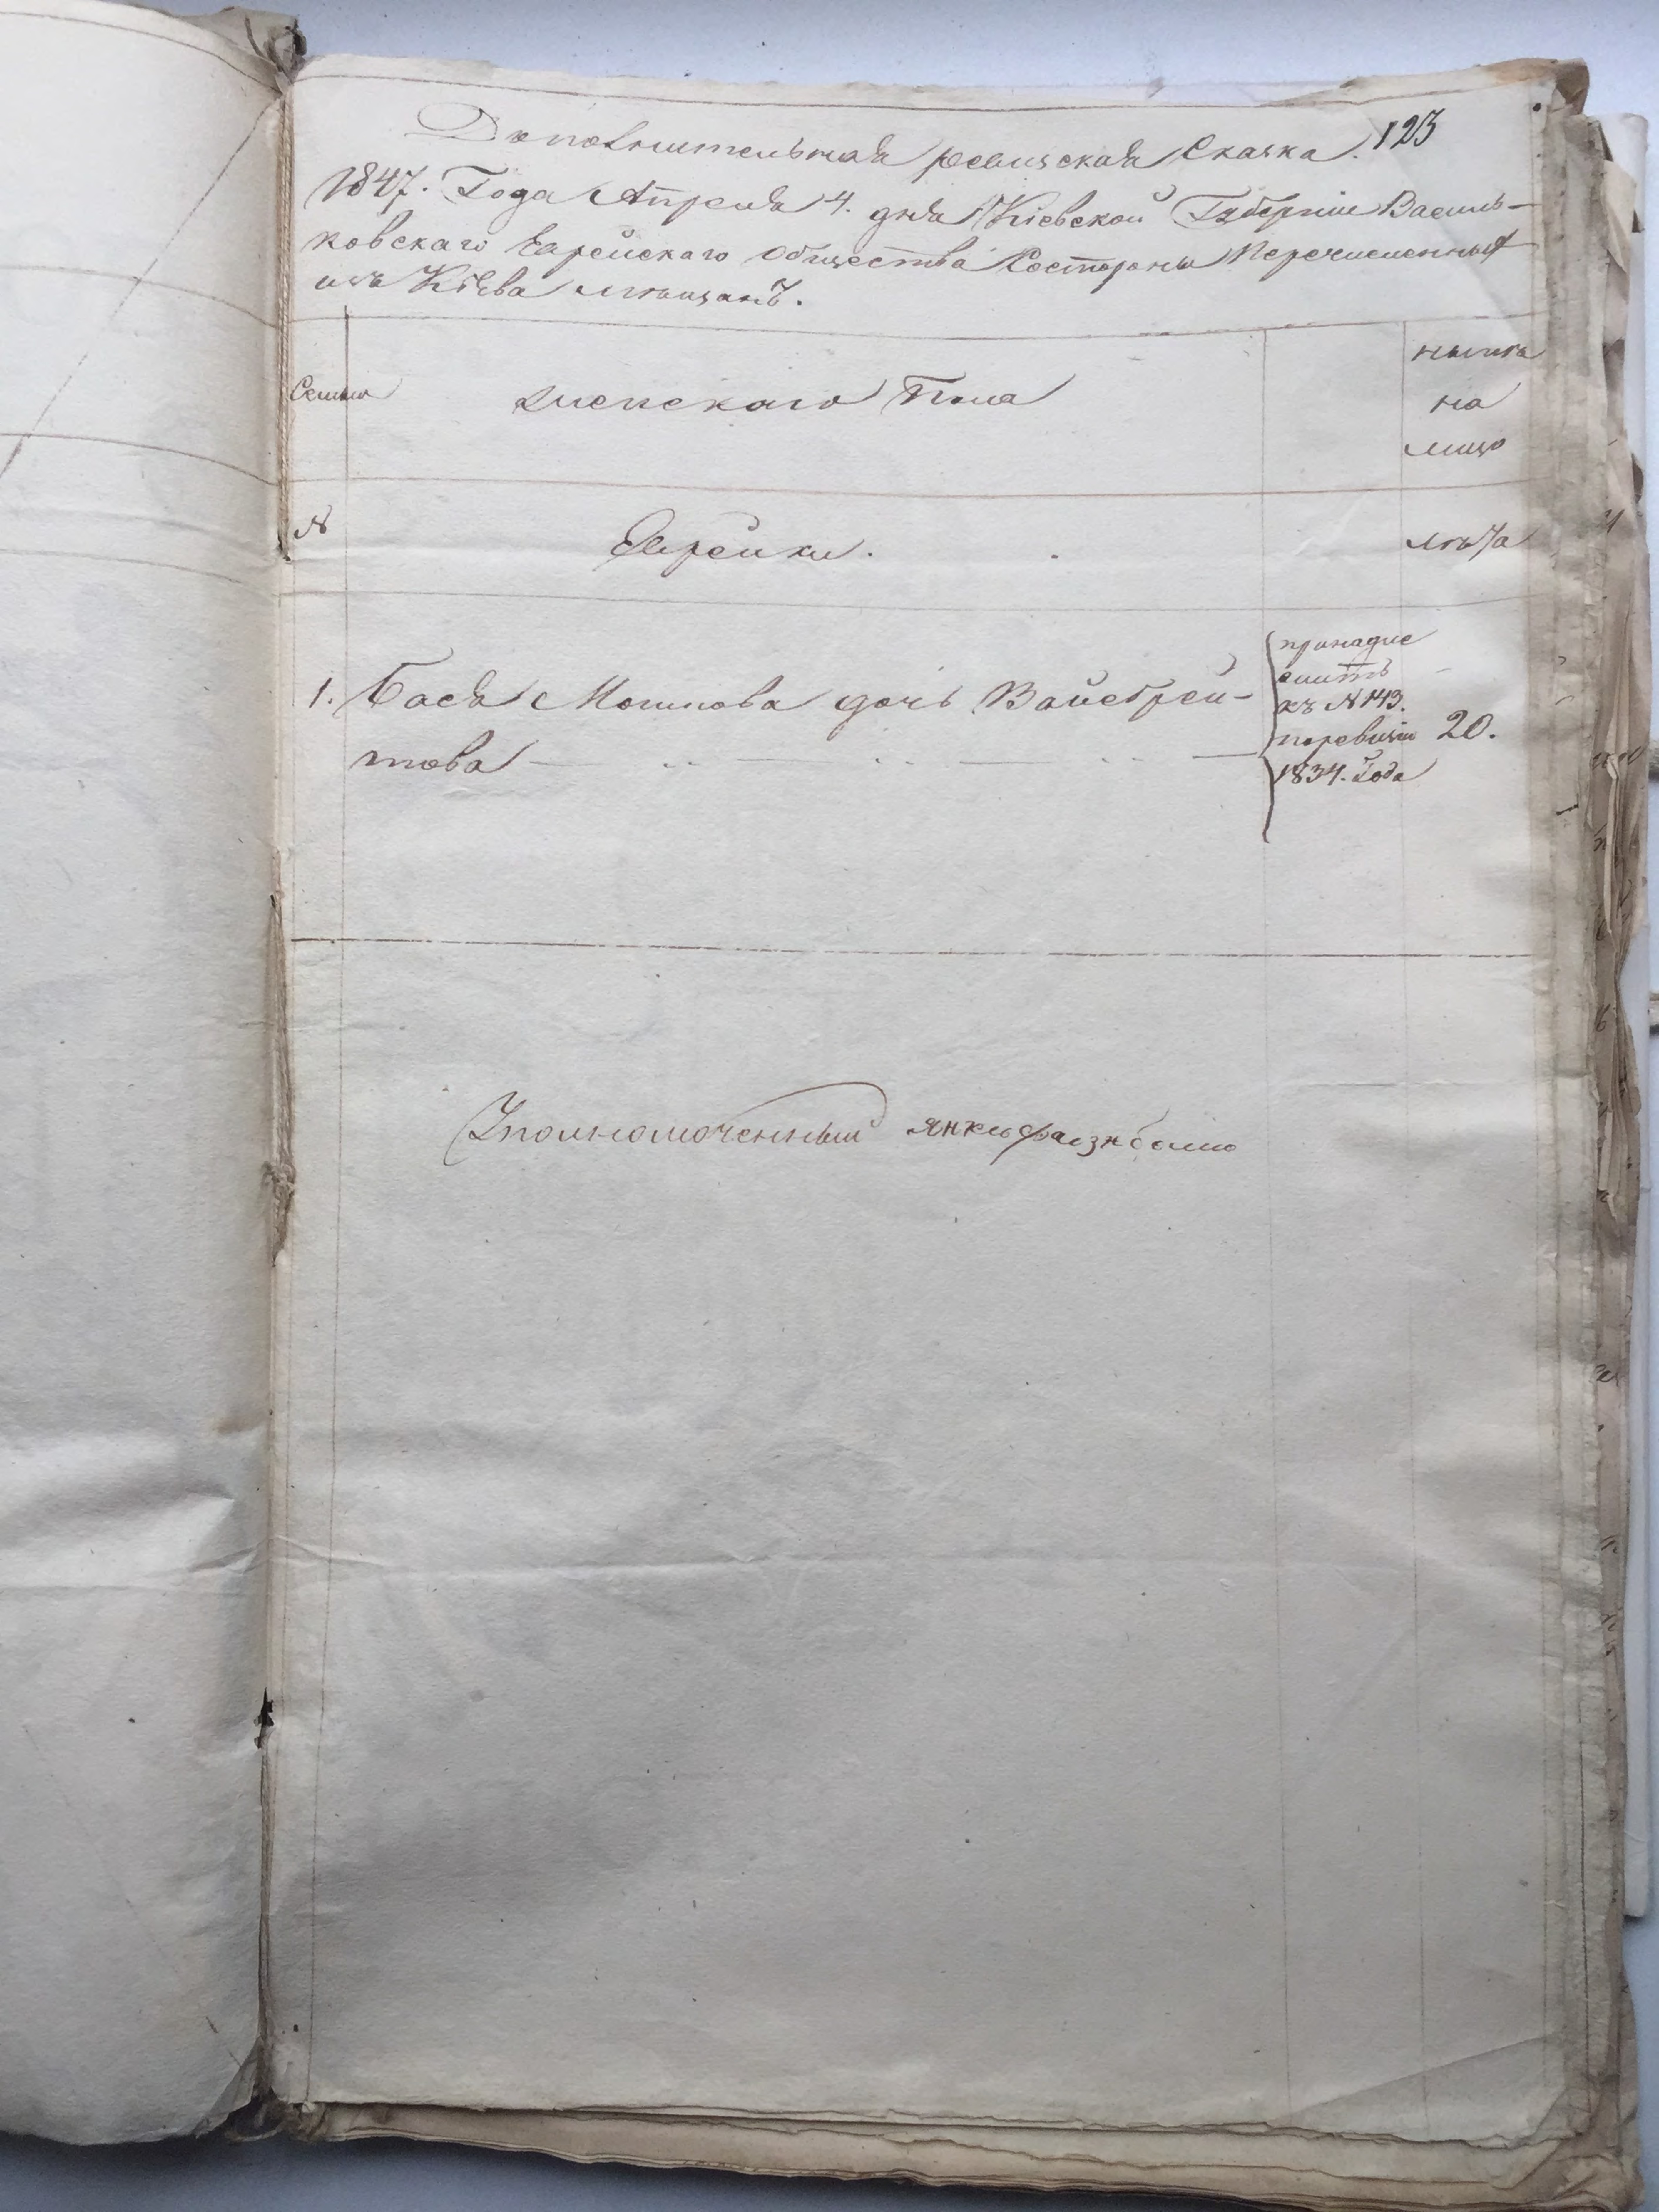 123
Дополнительная ревизская Сказка.
1847. Года Апреля 4. дня Кіевской Губерніи Василь-
ковскаго Еврейскаго общества Состороны Перечисленныхъ
изъ Кіева мѣщанъ.
Семьи
женскаго Пола
ныне
на
лицо
№
Еврейки.
лѣта
1. Бася Мошкова дочь Вайсбрей-
това
принадле
житъ
къ №143.
поревизіи
1834. Года
20.
Уполномоченный